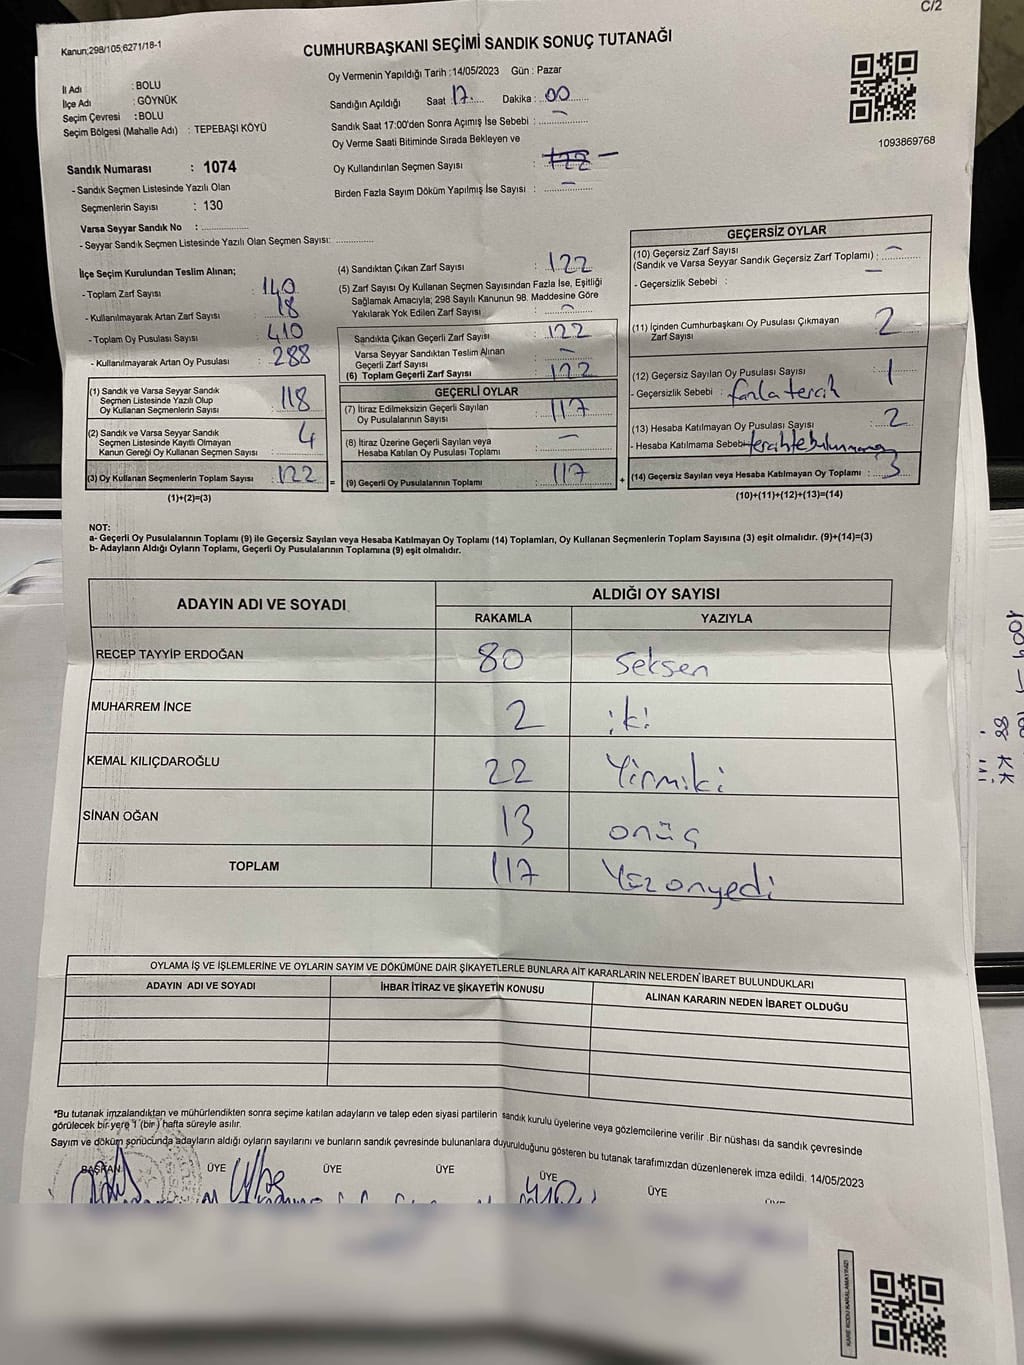 C/2
Kanun;298/105,6271/18-1
CUMHURBAŞKANI SEÇİMİ SANDIK SONUÇ TUTANAĞI
İl Adı : BOLU
İlçe Adı : GÖYNÜK
Seçim Çevresi : BOLU
Seçim Bölgesi (Mahalle Adı) : TEPEBAŞI KÖYÜ
Sandık Numarası : 1074
- Sandık Seçmen Listesinde Yazılı Olan
Seçmenlerin Sayısı : 130
Varsa Seyyar Sandık No :
- Seyyar Sandık Seçmen Listesinde Yazılı Olan Seçmen Sayısı:
Oy Vermenin Yapıldığı Tarih : 14/05/2023 Gün : Pazar
Sandığın Açıldığı Saat 17 Dakika : 00
Sandık Saat 17:00'den Sonra Açımış İse Sebebi : -
Oy Verme Saati Bitiminde Sırada Bekleyen ve
Oy Kullandırılan Seçmen Sayısı : -
Birden Fazla Sayım Döküm Yapılmış İse Sayısı : -
1093869768
İlçe Seçim Kurulundan Teslim Alınan;
- Toplam Zarf Sayısı : 140
- Kullanılmayarak Artan Zarf Sayısı : 18
- Toplam Oy Pusulası Sayısı : 410
- Kullanılmayarak Artan Oy Pusulası : 288
(1) Sandık ve Varsa Seyyar Sandık
Seçmen Listesinde Yazılı Olup
Oy Kullanan Seçmenlerin Sayısı : 118
(2) Sandık ve Varsa Seyyar Sandık
Seçmen Listesinde Kayıtlı Olmayan
Kanun Gereği Oy Kullanan Seçmen Sayısı : 4
(3) Oy Kullanan Seçmenlerin Toplam Sayısı : 122
(1)+(2)=(3)
(4) Sandıktan Çıkan Zarf Sayısı : 122
(5) Zarf Sayısı Oy Kullanan Seçmen Sayısından Fazla İse, Eşitliği
Sağlamak Amacıyla; 298 Sayılı Kanunun 98. Maddesine Göre
Yakılarak Yok Edilen Zarf Sayısı : -
Sandıkta Çıkan Geçerli Zarf Sayısı : 122
Varsa Seyyar Sandıktan Teslim Alınan
Geçerli Zarf Sayısı : -
(6) Toplam Geçerli Zarf Sayısı : 122
GEÇERLİ OYLAR
(7) İtiraz Edilmeksizin Geçerli Sayılan
Oy Pusulalarının Sayısı : 117
(8) İtiraz Üzerine Geçerli Sayılan veya
Hesaba Katılan Oy Pusulası Toplamı : -
(9) Geçerli Oy Pusulalarının Toplamı : 117
GEÇERSİZ OYLAR
(10) Geçersiz Zarf Sayısı
(Sandık ve Varsa Seyyar Sandık Geçersiz Zarf Toplamı) : -
- Geçersizlik Sebebi : -
(11) İçinden Cumhurbaşkanı Oy Pusulası Çıkmayan
Zarf Sayısı : 2
(12) Geçersiz Sayılan Oy Pusulası Sayısı : 1
- Geçersizlik Sebebi : fazla tercih
(13) Hesaba Katılmayan Oy Pusulası Sayısı : 2
- Hesaba Katılmama Sebebi :
(14) Geçersiz Sayılan veya Hesaba Katılmayan Oy Toplamı : 3
(10)+(11)+(12)+(13)=(14)
NOT:
a- Geçerli Oy Pusulalarının Toplamı (9) ile Geçersiz Sayılan veya Hesaba Katılmayan Oy Toplamı (14) Toplamları, Oy Kullanan Seçmenlerin Toplam Sayısına (3) eşit olmalıdır. (9)+(14)=(3)
b- Adayların Aldığı Oyların Toplamı, Geçerli Oy Pusulalarının Toplamına (9) eşit olmalıdır.
ADAYIN ADI VE SOYADI ALDIĞI OY SAYISI
RAKAMLA YAZIYLA
RECEP TAYYİP ERDOĞAN 80 Seksen
MUHARREM İNCE 2 iki
KEMAL KILIÇDAROĞLU 22 Yirmiki
SİNAN OĞAN 13 onüç
TOPLAM 117 Yüz onyedi
OYLAMA İŞ VE İŞLEMLERİNE VE OYLARIN SAYIM VE DÖKÜMÜNE DAİR ŞİKAYETLERLE BUNLARA AİT KARARLARIN NELERDEN İBARET BULUNDUKLARI
ADAYIN ADI VE SOYADI İHBAR İTİRAZ VE ŞİKAYETİN KONUSU ALINAN KARARIN NEDEN İBARET OLDUĞU
*Bu tutanak imzalandıktan ve mühürlendikten sonra seçime katılan adayların ve talep eden siyasi partilerin sandık kurulu üyelerine veya gözlemcilerine verilir .Bir nüshası da sandık çevresinde
görülecek bir yere 1 (bir) hafta süreyle asılır.
Sayım ve döküm sonucunda adayların aldığı oyların sayılarını ve bunların sandık çevresinde bulunanlara duyurulduğunu gösteren bu tutanak tarafımızdan düzenlenerek imza edildi. 14/05/2023
BAŞKAN ÜYE ÜYE ÜYE ÜYE ÜYE